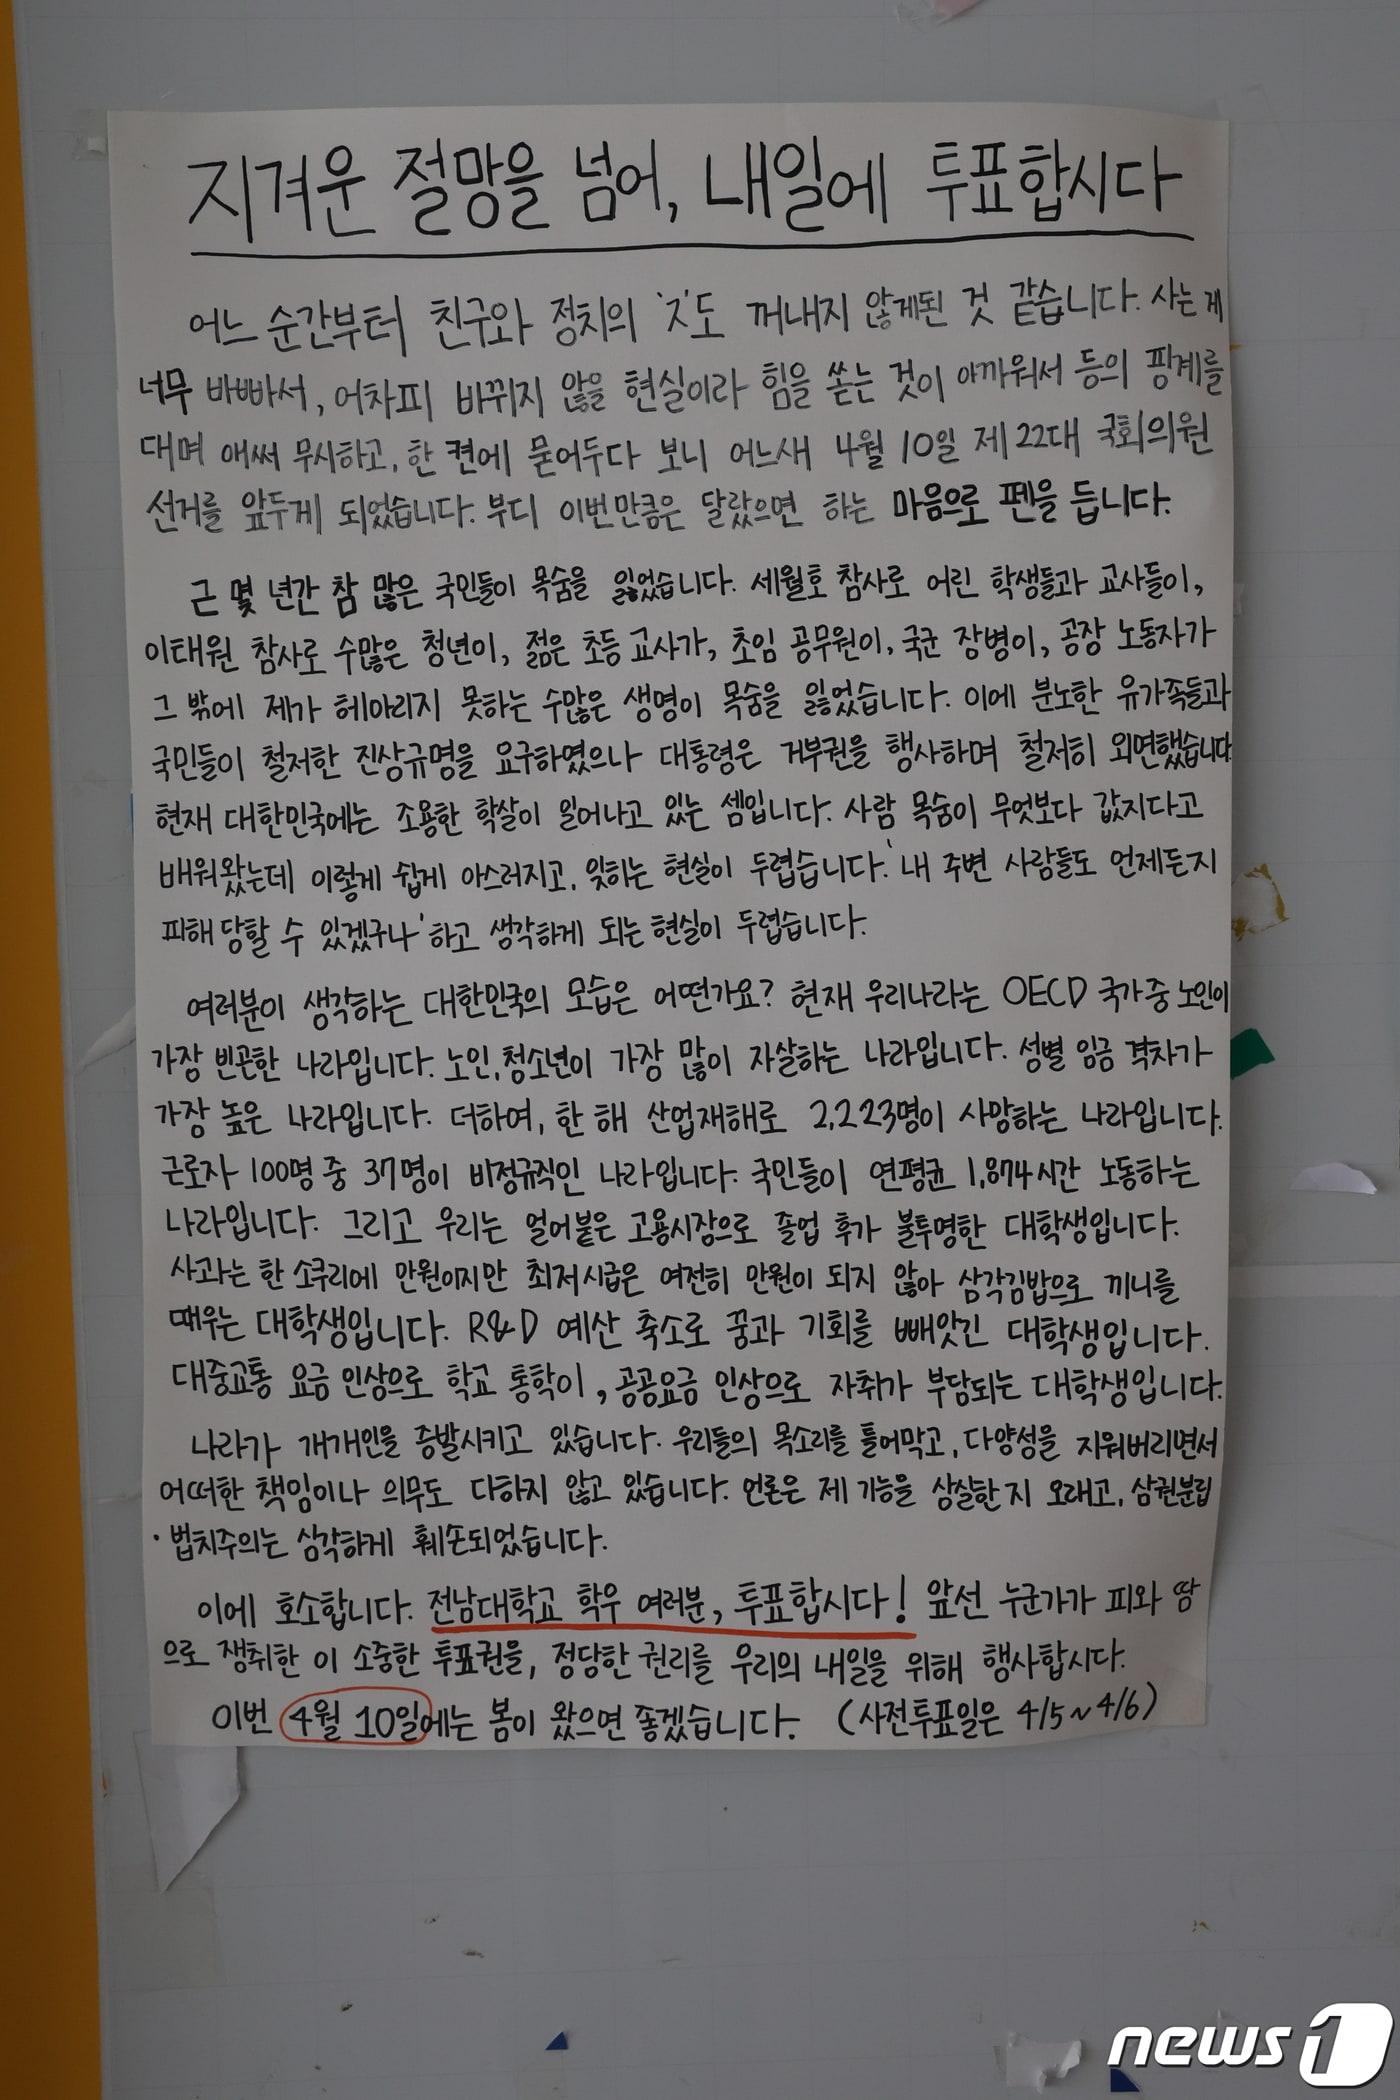 지겨운 절망을 넘어, 내일에 투표합시다
어느 순간부터 친구와 정치의 'ㅈ'도 꺼내지 않게된 것 같습니다. 사는 게
너무 바빠서, 어차피 바뀌지 않을 현실이라 힘을 쏟는 것이 아까워서 등의 핑계를
대며 애써 무시하고, 한 켠에 묻어두다 보니 어느새 4월 10일 제22대 국회의원
선거를 앞두게 되었습니다. 부디 이번만큼은 달랐으면 하는 마음으로 펜을 듭니다.
근 몇 년간 참 많은 국민들이 목숨을 잃었습니다. 세월호 참사로 어린 학생들과 교사들이,
이태원 참사로 수많은 청년이, 젊은 초등 교사가, 초임 공무원이, 국군 장병이, 공장 노동자가
그 밖에 제가 헤아리지 못하는 수많은 생명이 목숨을 잃었습니다. 이에 분노한 유가족들과
국민들이 철저한 진상규명을 요구하였으나 대통령은 거부권을 행사하며 철저히 외면했습니다
현재 대한민국에는 조용한 학살이 일어나고 있는 셈입니다. 사람 목숨이 무엇보다 값지다고
배워왔는데 이렇게 쉽게 아스러지고, 잊히는 현실이 두렵습니다. '내 주변 사람들도 언제든지
피해 당할 수 있겠구나' 하고 생각하게 되는 현실이 두렵습니다.
여러분이 생각하는 대한민국의 모습은 어떤가요? 현재 우리나라는 OECD 국가 중 노인이
가장 빈곤한 나라입니다. 노인, 청소년이 가장 많이 자살하는 나라입니다. 성별 임금 격차가
가장 높은 나라입니다. 더하여, 한 해 산업재해로 2,223명이 사망하는 나라입니다.
근로자 100명 중 37명이 비정규직인 나라입니다. 국민들이 연평균 1,874시간 노동하는
나라입니다. 그리고 우리는 얼어붙은 고용시장으로 졸업 후가 불투명한 대학생입니다.
사과는 한 소쿠리에 만원이지만 최저시급은 여전히 만원이 되지 않아 삼각김밥으로 끼니를
때우는 대학생입니다. R&D 예산 축소로 꿈과 기회를 빼앗긴 대학생입니다.
대중교통 요금 인상으로 학교 통학이, 공공요금 인상으로 자취가 부담되는 대학생입니다.
나라가 개개인을 증발시키고 있습니다. 우리들의 목소리를 틀어막고, 다양성을 지워버리면서
어떠한 책임이나 의무도 다하지 않고 있습니다. 언론은 제 기능을 상실한 지 오래고, 삼권분립
·법치주의는 심각하게 훼손되었습니다.
이에 호소합니다. 전남대학교 학우 여러분, 투표합시다! 앞선 누군가가 피와 땀
으로 쟁취한 이 소중한 투표권을, 정당한 권리를 우리의 내일을 위해 행사합시다.
이번 4월 10일에는 봄이 왔으면 좋겠습니다. (사전투표일은 4/5~4/6)
news1